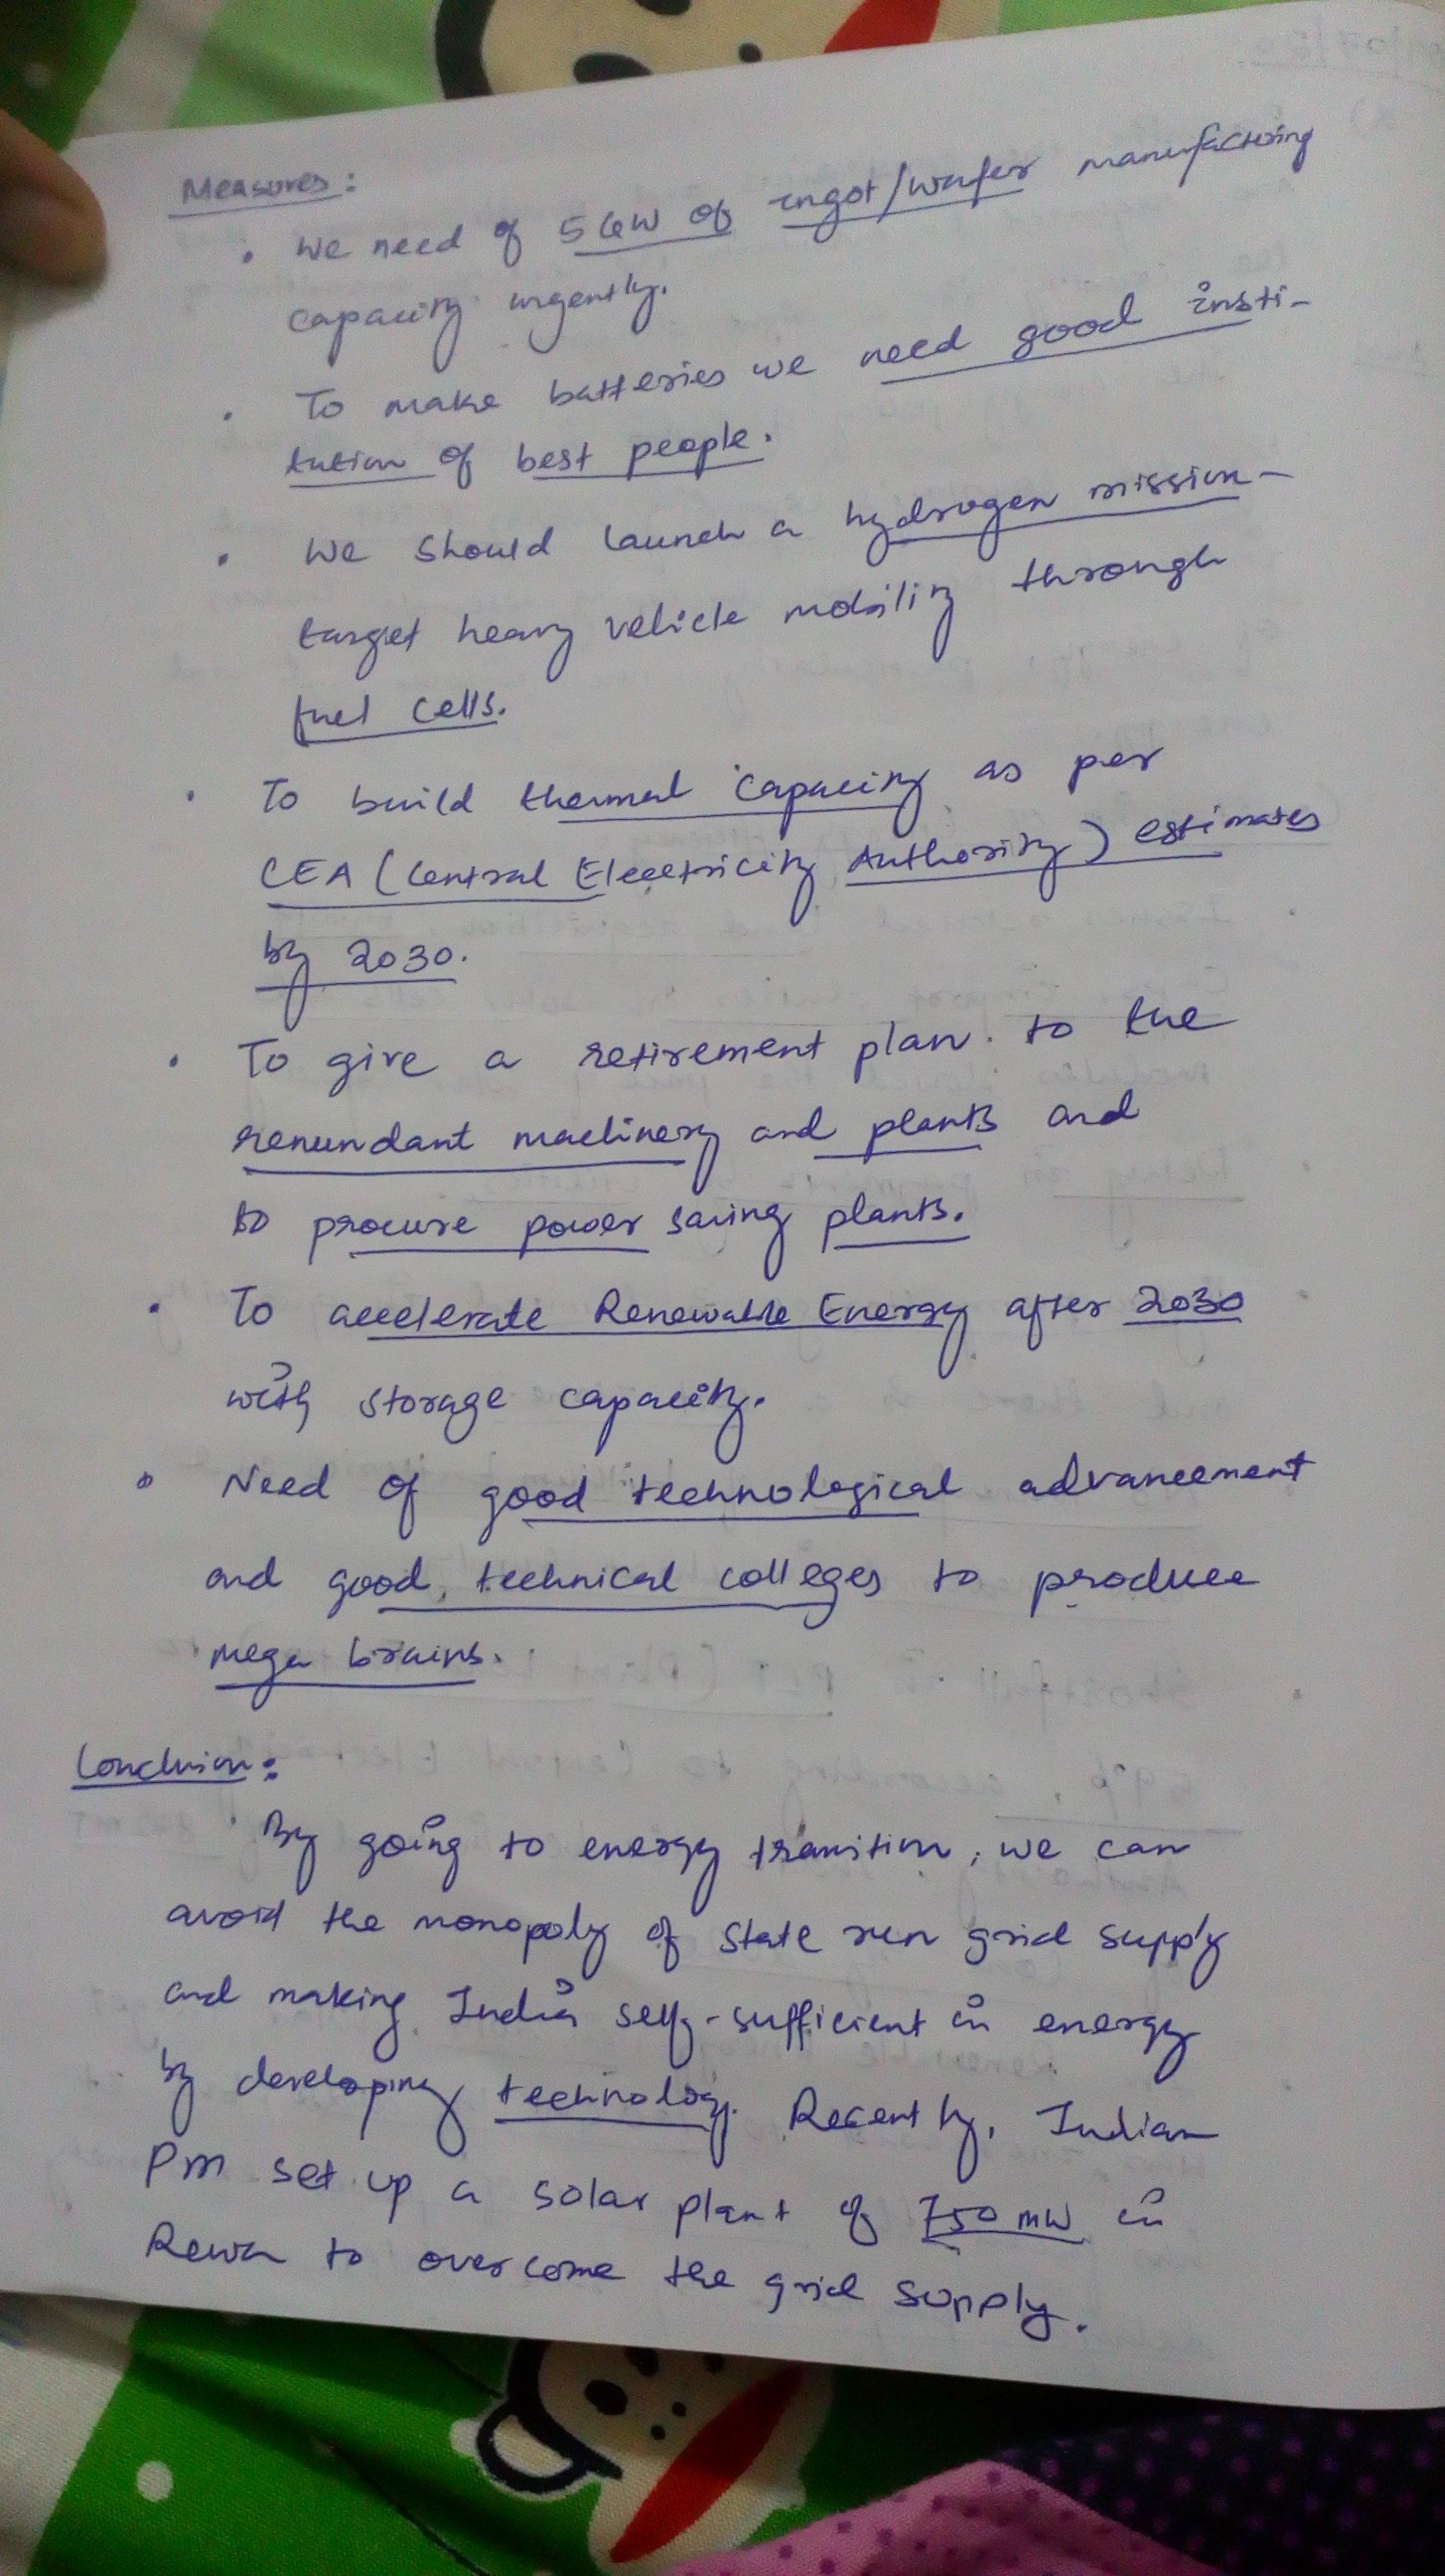 Measures:
• We need of 5 GW of ingot/wafer manufacturing
capacity urgently.
• To make batteries we need good insti-
tution of best people.
• We should launch a hydrogen mission-
target heavy vehicle mobility through
fuel cells.
• To build thermal capacity as per
CEA (Central Electricity Authority) estimates
by 2030.
• To give a retirement plan to the
renundant machinery and plants and
to procure power saving plants.
• To accelerate Renewable Energy after 2030
with storage capacity.
• Need of good technological advancement
and good technical colleges to produce
mega brains.
Conclusion:
By going to energy transition, we can
avoid the monopoly of state run grid supply
and making India self-sufficient in energy
by developing technology. Recently, Indian
PM set up a solar plant of 750 MW in
Rewa to overcome the grid supply.